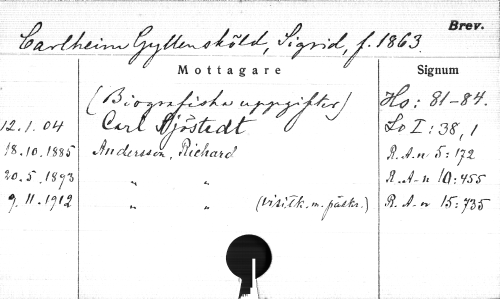 Brev.
Carlheim Gyllensköld, Sigrid, f. 1863.
Mottagare Signum
(Biografiska uppgifter) Ho: 81-84.
12.1.04 Carl Sjöstedt Lo I: 38, 1
18.10.1885 Andersson, Richard R.A-n 5: 172
20.5.1893 " " R.A-n 10:455
9.11.1912 " " (visitk. m. påskr.) R.A-n 15:735